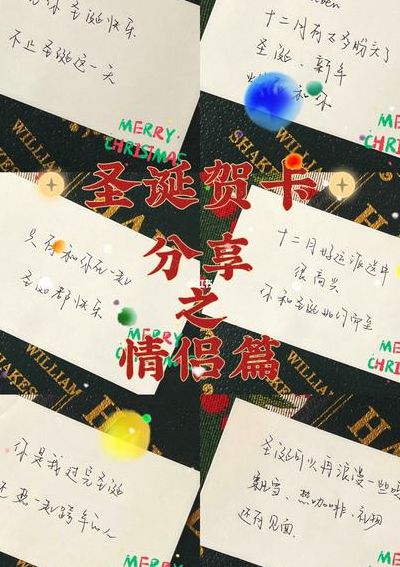 你圣诞快乐
不止圣诞这一天
MERRY
CHRISTMAS
WILLIAM
十二月有太多盼头了
圣诞、新年
和你
MERRY
CHRIST
WILLIAM
SHAKES
圣诞贺卡
分享
之
情侣篇
只有和你在一起
圣诞都快乐
MERR
WILLIAM
SHAKES
十二月好运派送中
很高兴
你和圣诞如约而至
MERRY
CHRIS
WILLIA
你是我过完圣诞
还想一起跨年的人
MERR
圣诞可以再浪漫一些吗
飘雪、热咖啡、礼物
还有见面
MERRY
CHRIS